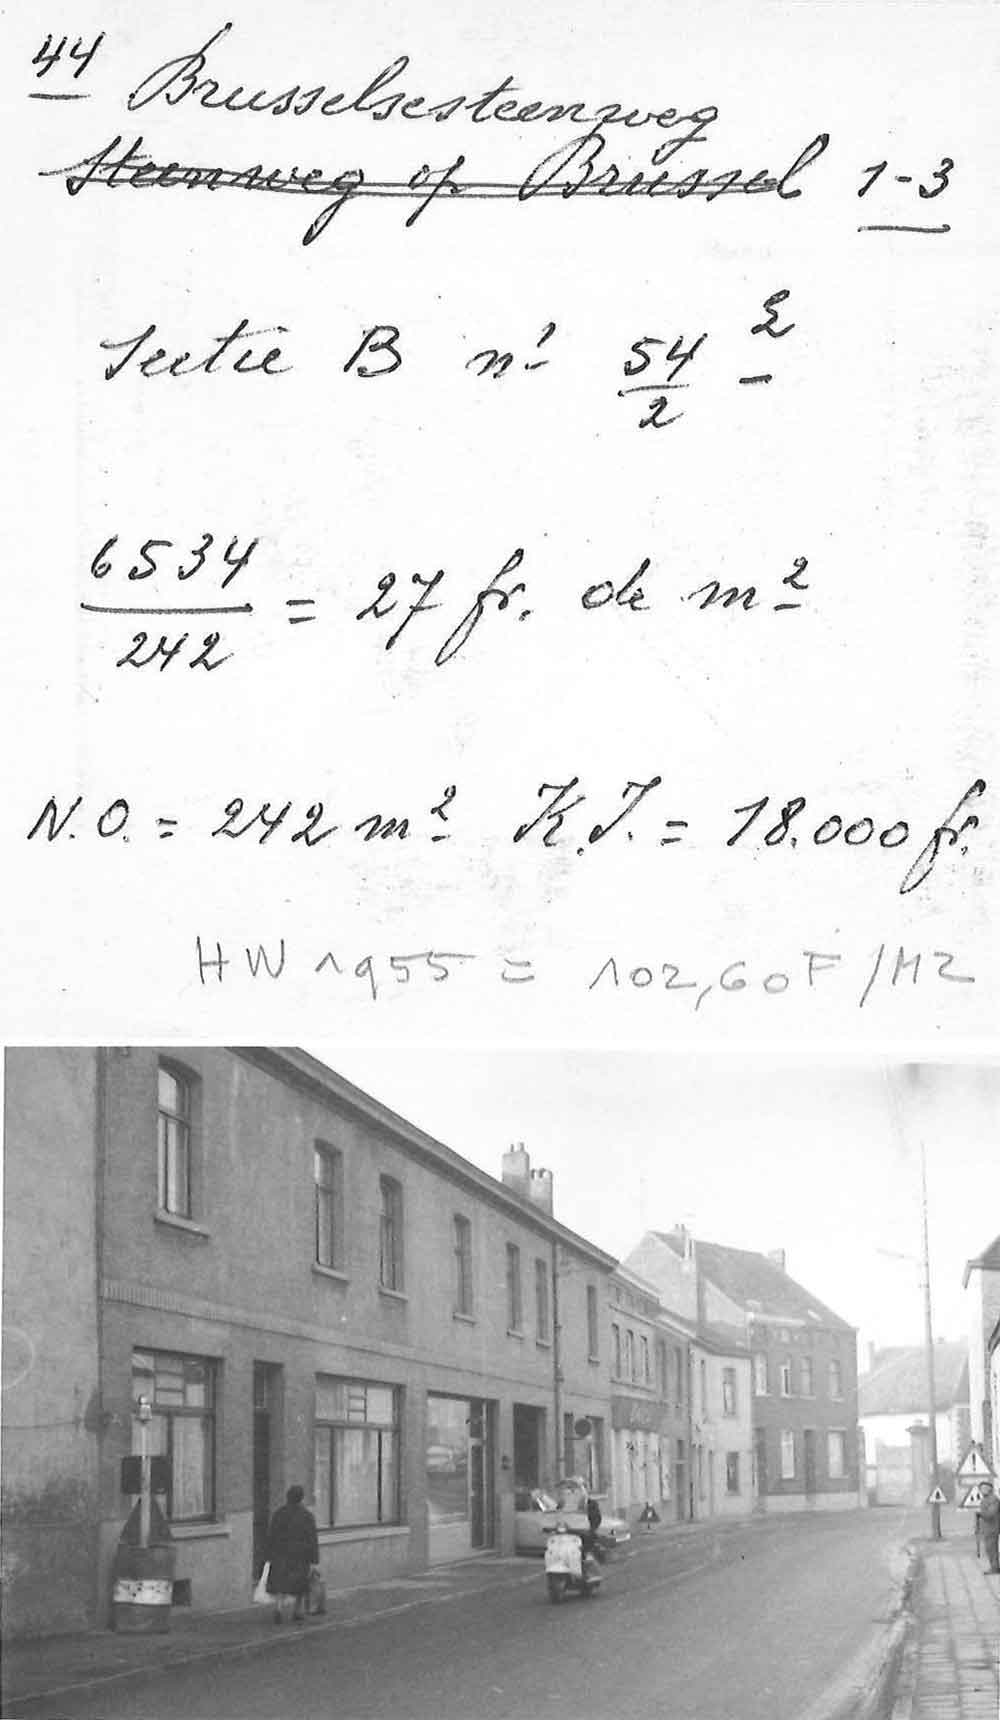 44 Brusselsesteenweg
Steenweg op Brussel 1-3
Sectie B nr 54/2
6534/242 = 27 fr. de m²
N.O. = 242 m² K.I. = 18.000 fr.
HW 1955 = 102,60F/M2